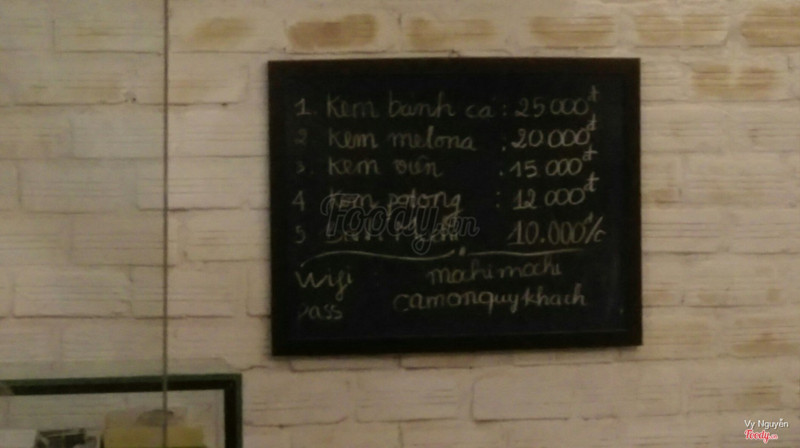 1. Kem bánh cá : 25 000đ
2 Kem melona : 20 000đ
3. Kem viên : 15 000đ
4 Kem polong : 12 000đ
5 10.000đ/c
Wifi mochi mochi
pass camonquykhach
Foody.vn
Vy Nguyễn
Foody.vn